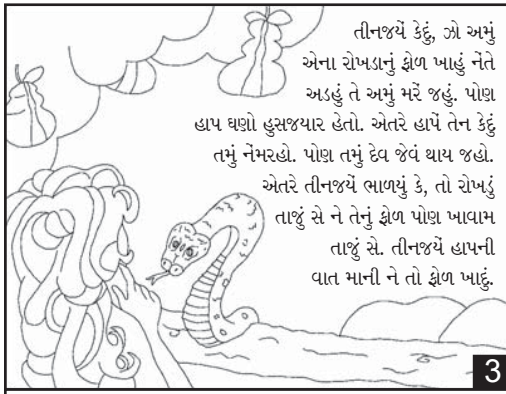 તીનજયેં કેદું, ઝો અમું
એના રોખડાનું ફ઼ોળ ખાહું નેંતે
અડહું તે અમું મરેં જહું. પોણ
હાપ ઘણો હુસજયાર હેતો. એતરે હાપેં તેન કેદું
તમું નેંમરહો. પોણ તમું દેવ જેવં થાય જહો.
એતરે તીનજયેં ભાળયું કે, તો રોખડું
તાજું સે ને તેનું ફ઼ોળ પોણ ખાવામ
તાજું સે. તીનજયેં હાપની
વાત માની ને તો ફ઼ોળ ખાદું.
3